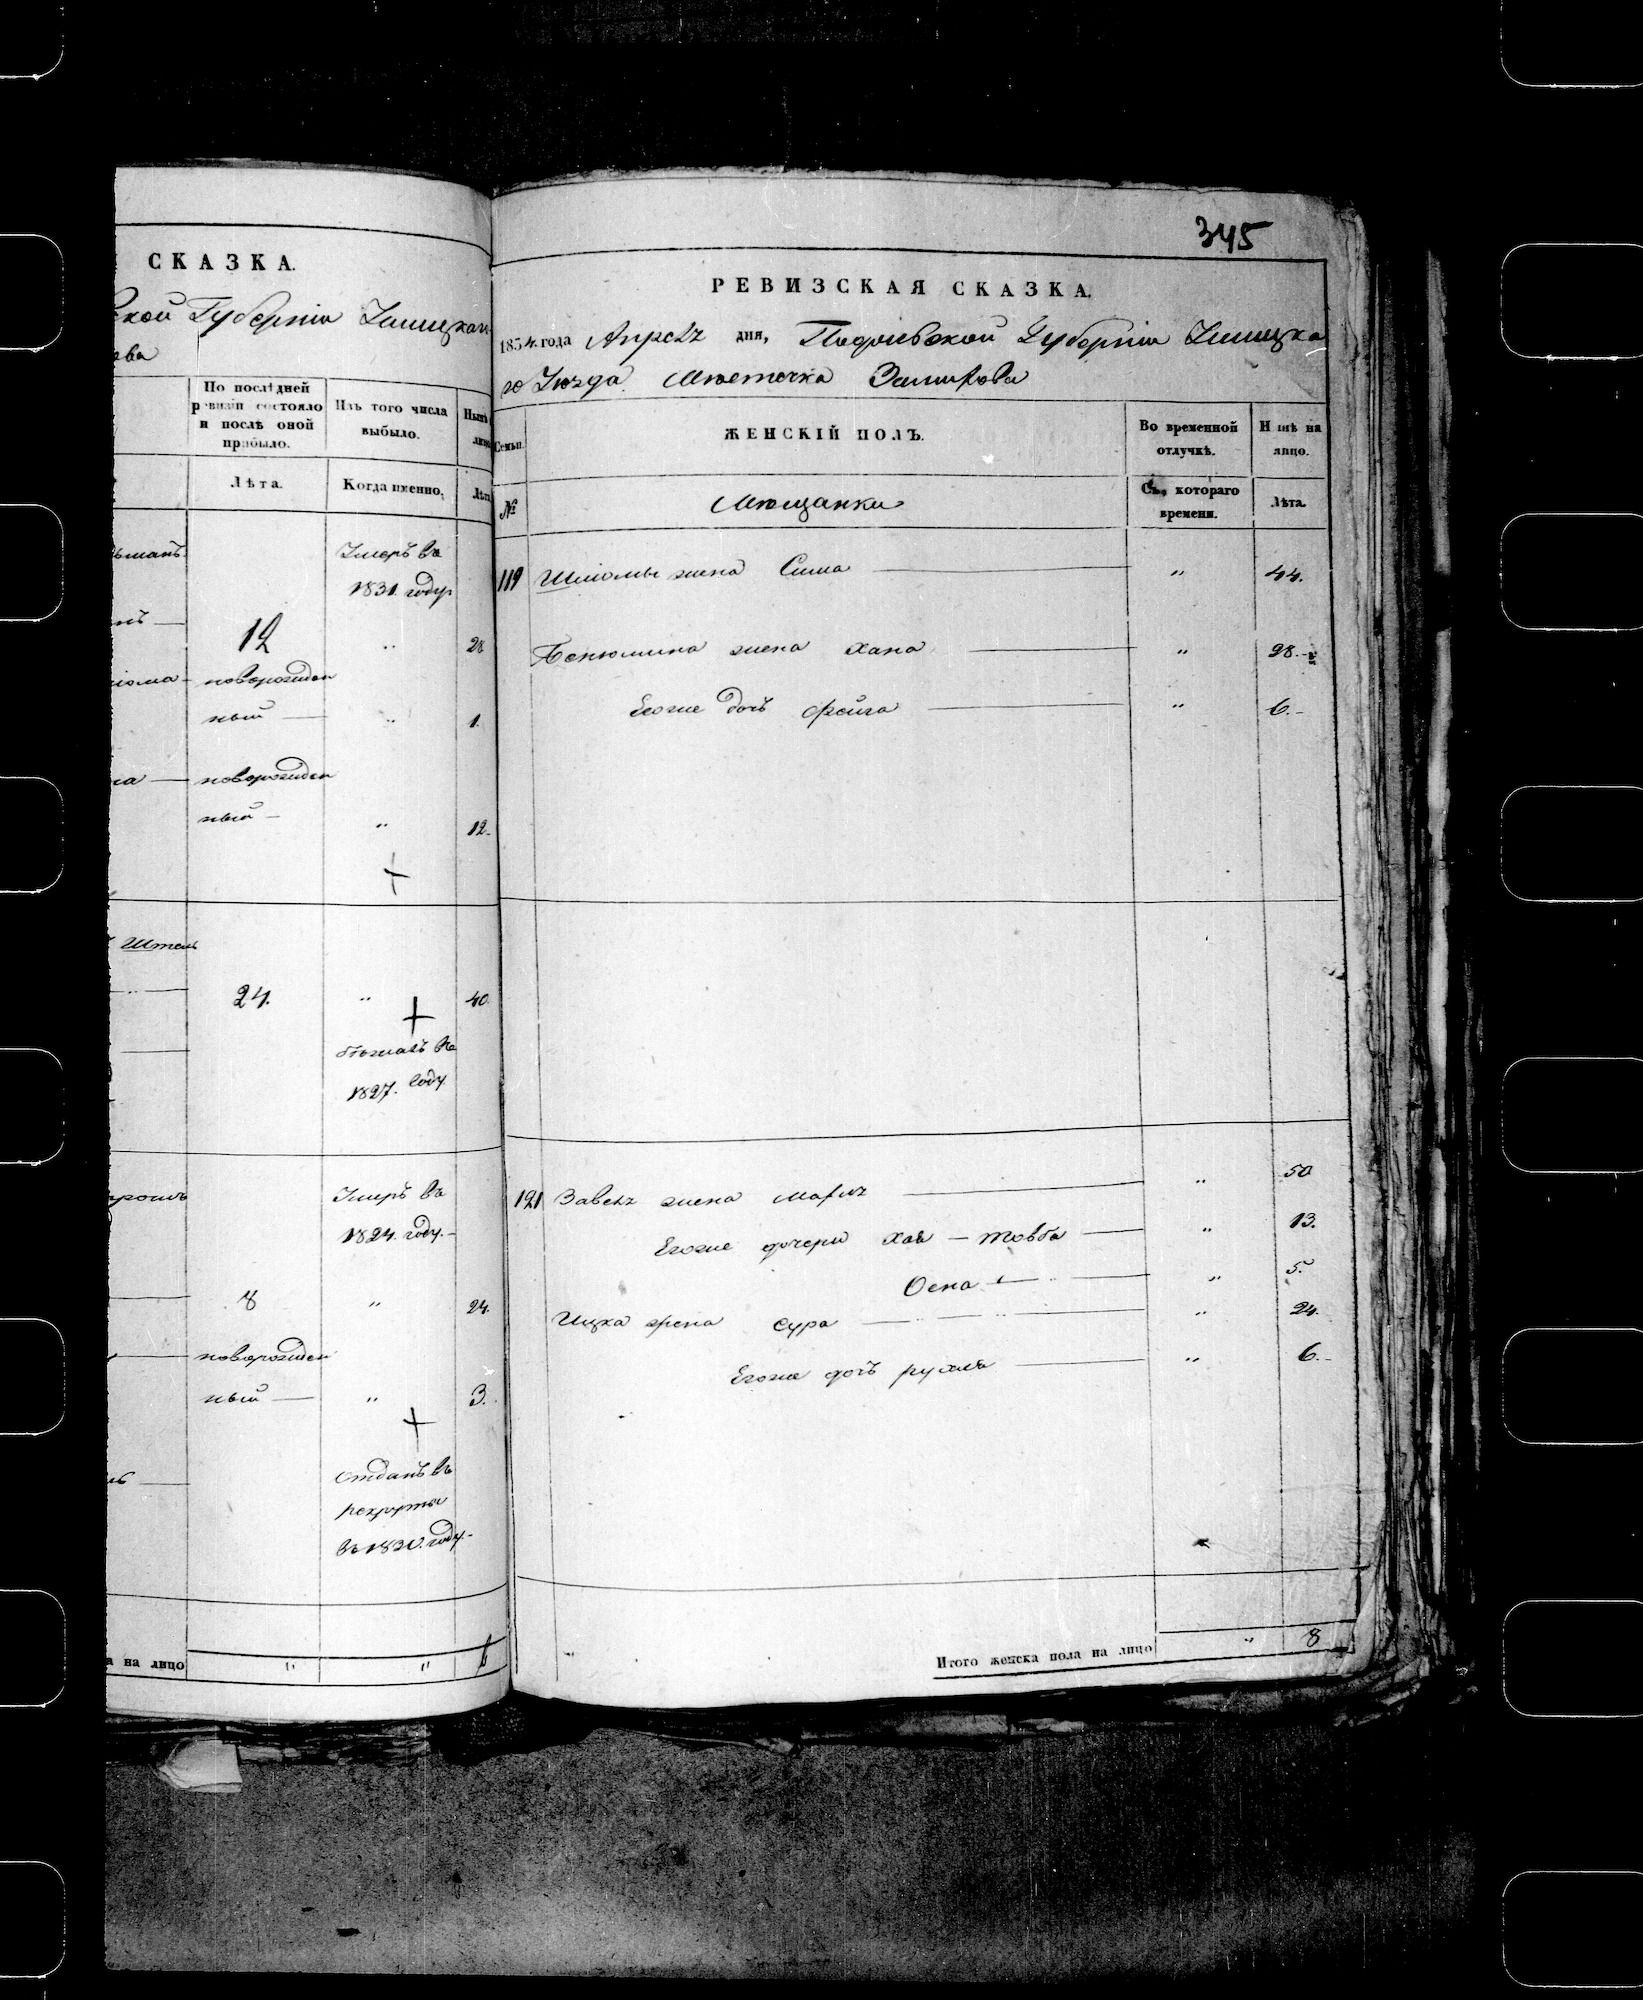 СКАЗКА.
ской Губерніи Ушицкаго
ова
По послѣдней
ревизіи состояло
и послѣ оной
прибыло.
Изъ того числа
выбыло.
Нынѣ
лицо
Лѣта.
Когда именно.
Лѣта
Умеръ въ
1831. году
12 " 28
новорожден
ный — " 1.
новорожден
ный — " 12.
Штель
24. " 40.
бѣжалъ въ
1827. году.
Умеръ въ
1824. году. -
8 " 24.
новорожден
ный — " 3.
отданъ въ
рекруты
въ 1830. году. -
на лицо " "
345
РЕВИЗСКАЯ СКАЗКА.
1834. года Апрель дня, Подольской Губерніи Ушицка
го Уезда Местечка Замирова
Семьи. ЖЕНСКІЙ ПОЛЪ. Во временной
отлучкѣ. Нынѣ на
лицо.
№ Мещанки Съ котораго
времени. Лѣта.
119 Шліомы жена Сима — " 44.
Бенюмина жена Хана — " 28. -
Егоже дочь Фейга — " 6. -
121 жена — " 50
Егоже дочери Хая — Товба — " 13.
Осна — " 5.
Ицка жена Сура — " 24.
Егоже дочь Рухля — " 6. -
Итого женска пола на лицо " 8